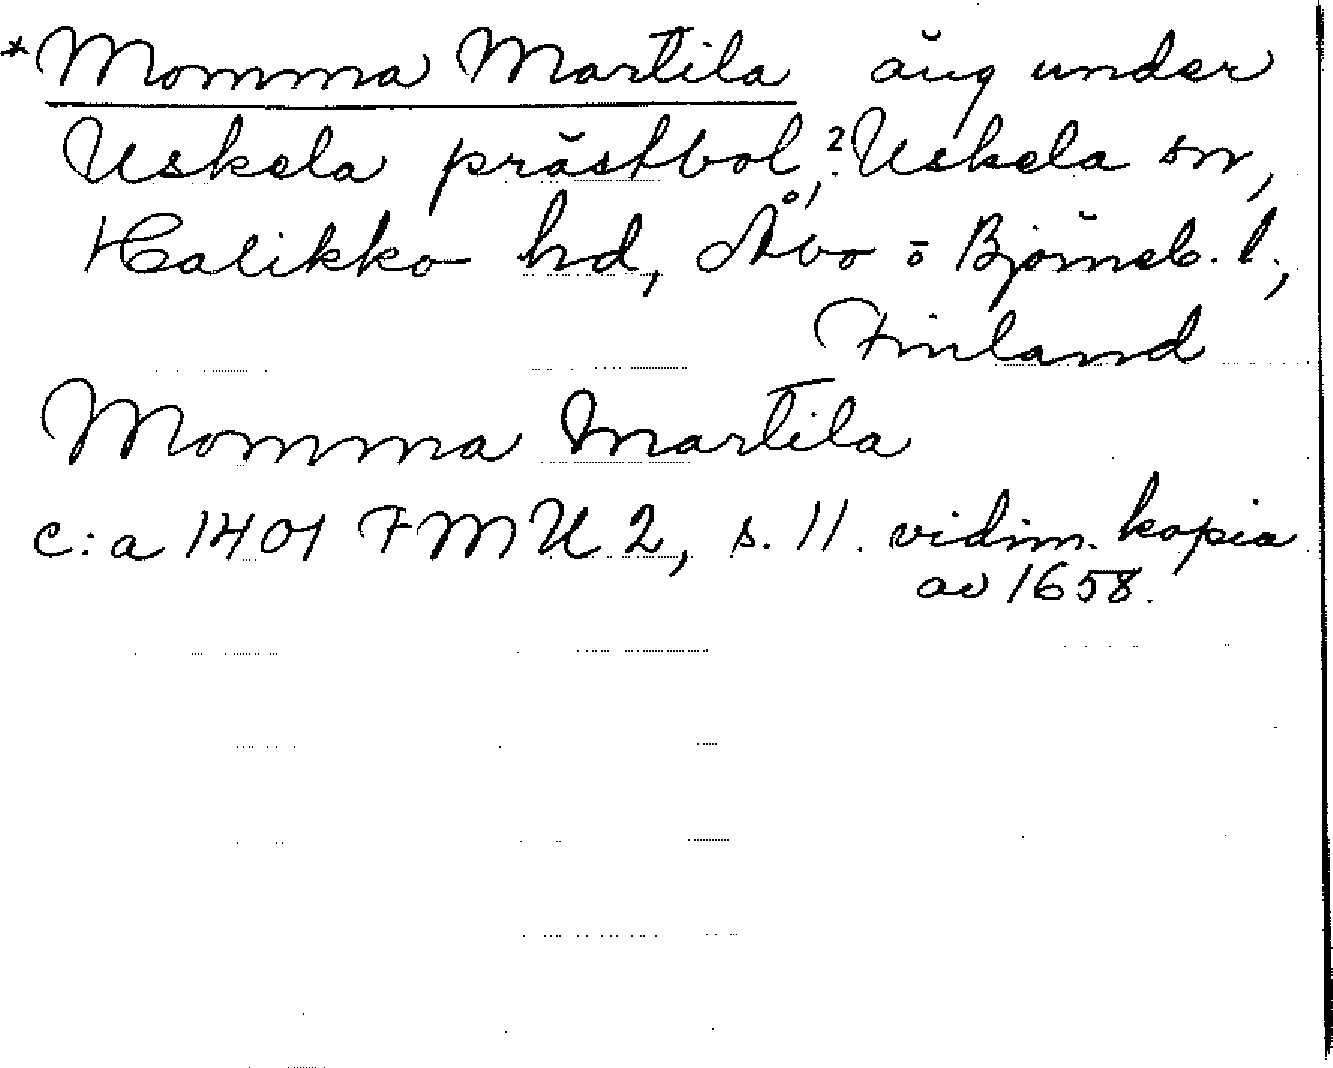 *Momma Martila äng under
Uskela prästbol, ? Uskela sn,
Halikko hd, Åbo o Björneb. l.,
Finland
Momma Martila
c:a 1401 FMU 2, s. 11. vidim. kopia
av 1658.